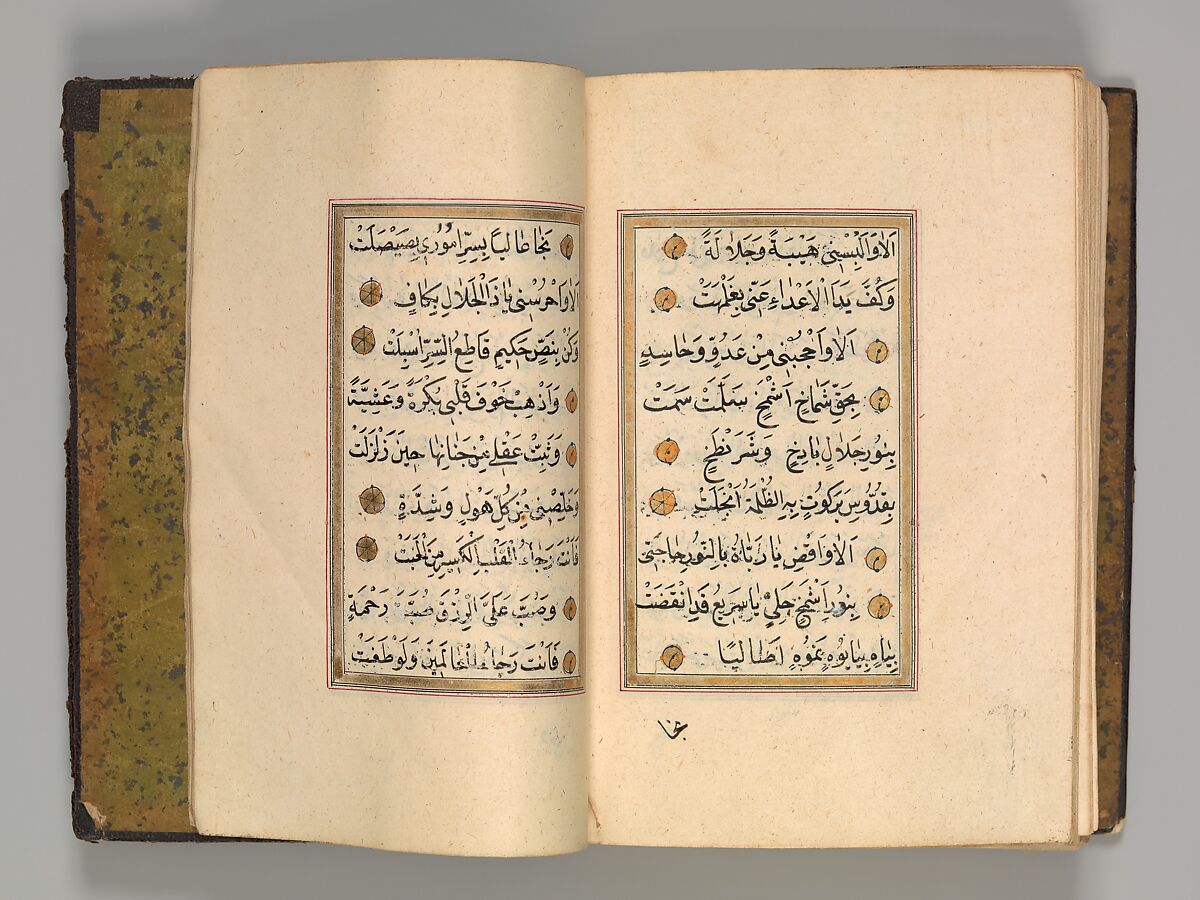 اَلَا وَاَلْبِسْنِي هَيْبَةً وَجَلَالَةً
وَكُفَّ يَدَ الْاَعْدَاءِ عَنِّي بِغَلْمَهَتْ
اَلَا وَاحْجُبْنِي مِنْ عَدُوٍّ وَحَاسِدٍ
بِحَقِّ شَمَاخٍ اَشْمَخٍ سَلَّمَتْ سَمَتْ
بِنُورِ جَلَالٍ بَازِخٍ وَشَرَنْطَخٍ
بِقُدُّوسِ بَرَكُوتٍ بِهِ الظُّلْمَةُ انْجَلَتْ
اَلَا وَاقْضِ يَا رَبَّاهُ بِالنُّورِ حَاجَتِي
بِنُورِ اَشْمَخٍ جَلِيٍّ يَا سَرِيعُ قَدِ انْقَضَتْ
بِيَاهٍ بِيَايَوُهٍ نَمُوهٍ اَصَالِيًا
نجا
نَجَا عَالِيًا يَسِّرْ اُمُورِي بِصَيْصَلَتْ
اَلَا وَاحْرُسْنِي يَا ذَا الْجَلَالِ بِكَافٍ
وَكُنْ بِنَصٍّ حَكِيمٍ قَاطِعِ السِّرِّ اَسْبِلَتْ
وَاَذْهِبْ خَوْفَ قَلْبِي بُكْرَةً وَعَشِيَّةً
وَثَبِّتْ عَقْلِي مِنْ جَنَانِهَا حِينَ زَلْزَلَتْ
وَخَلِّصْنِي مِنْ كُلِّ هَوْلٍ وَشِدَّةٍ
فَاَنْتَ رَجَاءُ الْقَلْبِ الْكَسِيرِ مِنَ الْخَبَتْ
وَصُبَّ عَلَيَّ الرِّزْقَ صُبَّةَ رَحْمَةٍ
فَاَنْتَ رَجَاءُ الْعَالَمِينَ وَلَوْ طَغَتْ